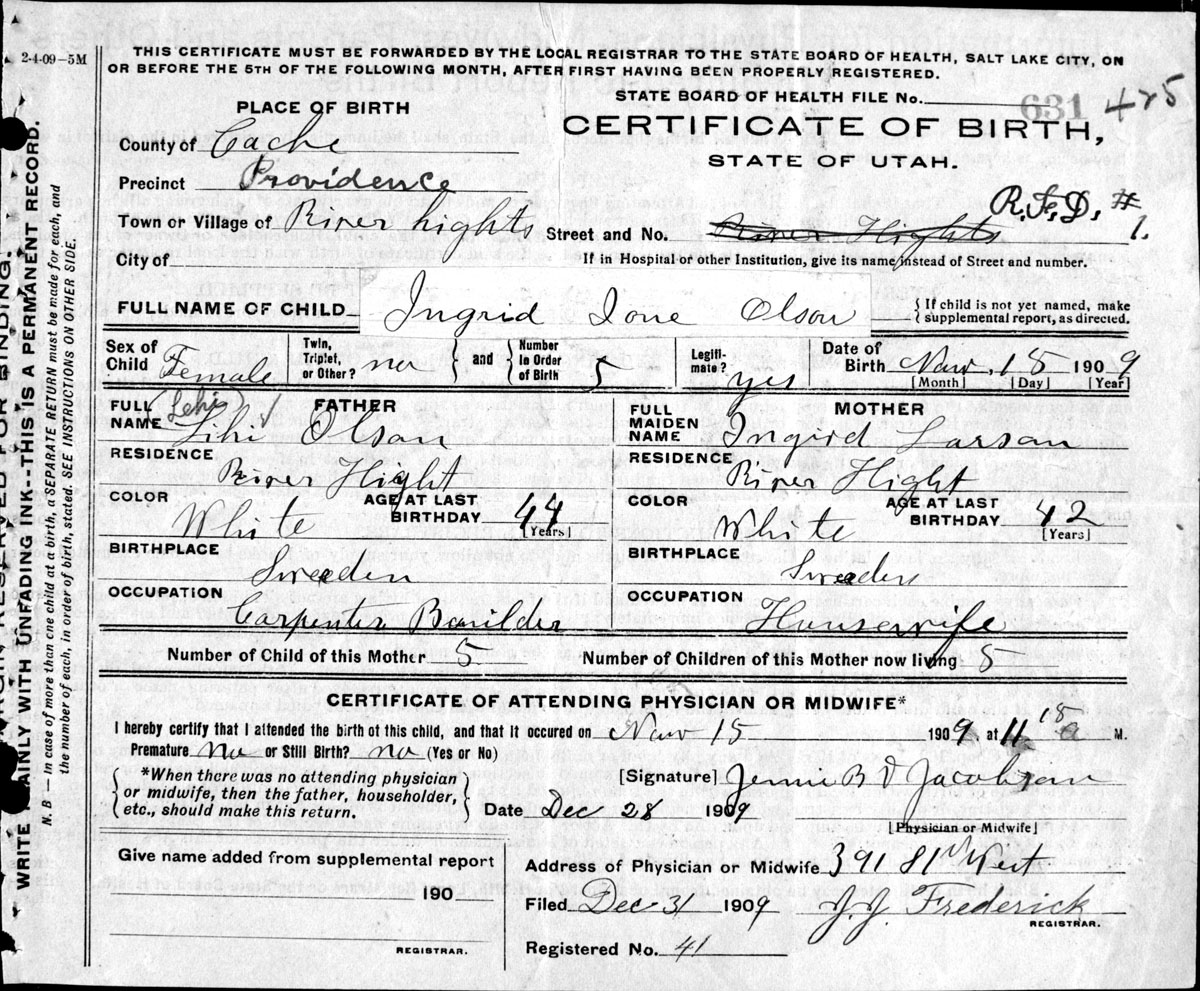 2-4-09—5M
THIS CERTIFICATE MUST BE FORWARDED BY THE LOCAL REGISTRAR TO THE STATE BOARD OF HEALTH, SALT LAKE CITY, ON
OR BEFORE THE 5TH OF THE FOLLOWING MONTH, AFTER FIRST HAVING BEEN PROPERLY REGISTERED.
PLACE OF BIRTH
STATE BOARD OF HEALTH FILE No. 631 425
County of Cache
CERTIFICATE OF BIRTH,
STATE OF UTAH.
Precinct Providence
Town or Village of River hights Street and No. River Hights R.F.D. # 1.
City of If in Hospital or other Institution, give its name instead of Street and number.
FULL NAME OF CHILD Ingrid Ione Olson { If child is not yet named, make
supplemental report, as directed.
Sex of Child Female Twin, Triplet, or Other? no } and { Number in Order of Birth 5 Legitimate? yes Date of Birth Nov. 15 1909
[Month] [Day] [Year]
FATHER
FULL NAME (Lehi) Lihi Olson
RESIDENCE River Hight
COLOR White AGE AT LAST BIRTHDAY 44 [Years]
BIRTHPLACE Sweeden
OCCUPATION Carpenter Bauilder
MOTHER
FULL MAIDEN NAME Ingrid Larson
RESIDENCE River Hight
COLOR White AGE AT LAST BIRTHDAY 42 [Years]
BIRTHPLACE Sweeden
OCCUPATION Housewife
Number of Child of this Mother 5 Number of Children of this Mother now living 5
CERTIFICATE OF ATTENDING PHYSICIAN OR MIDWIFE*
I hereby certify that I attended the birth of this child, and that it occured on Nov 15 1909 at 11 15 a M.
Premature no or Still Birth? no (Yes or No)
{ *When there was no attending physician
or midwife, then the father, householder,
etc., should make this return. }
[Signature] Jennie B Jacobson
Date Dec 28 1909
[Physician or Midwife]
Give name added from supplemental report
190
REGISTRAR.
Address of Physician or Midwife 391 West
Filed Dec 31 1909 J.J. Frederick
REGISTRAR.
Registered No. 41
WRITE PLAINLY WITH UNFADING INK--THIS IS A PERMANENT RECORD.
N. B — In case of more than one child at a birth, a SEPARATE RETURN must be made for each, and
the number of each, in order of birth, stated. SEE INSTRUCTIONS ON OTHER SIDE.